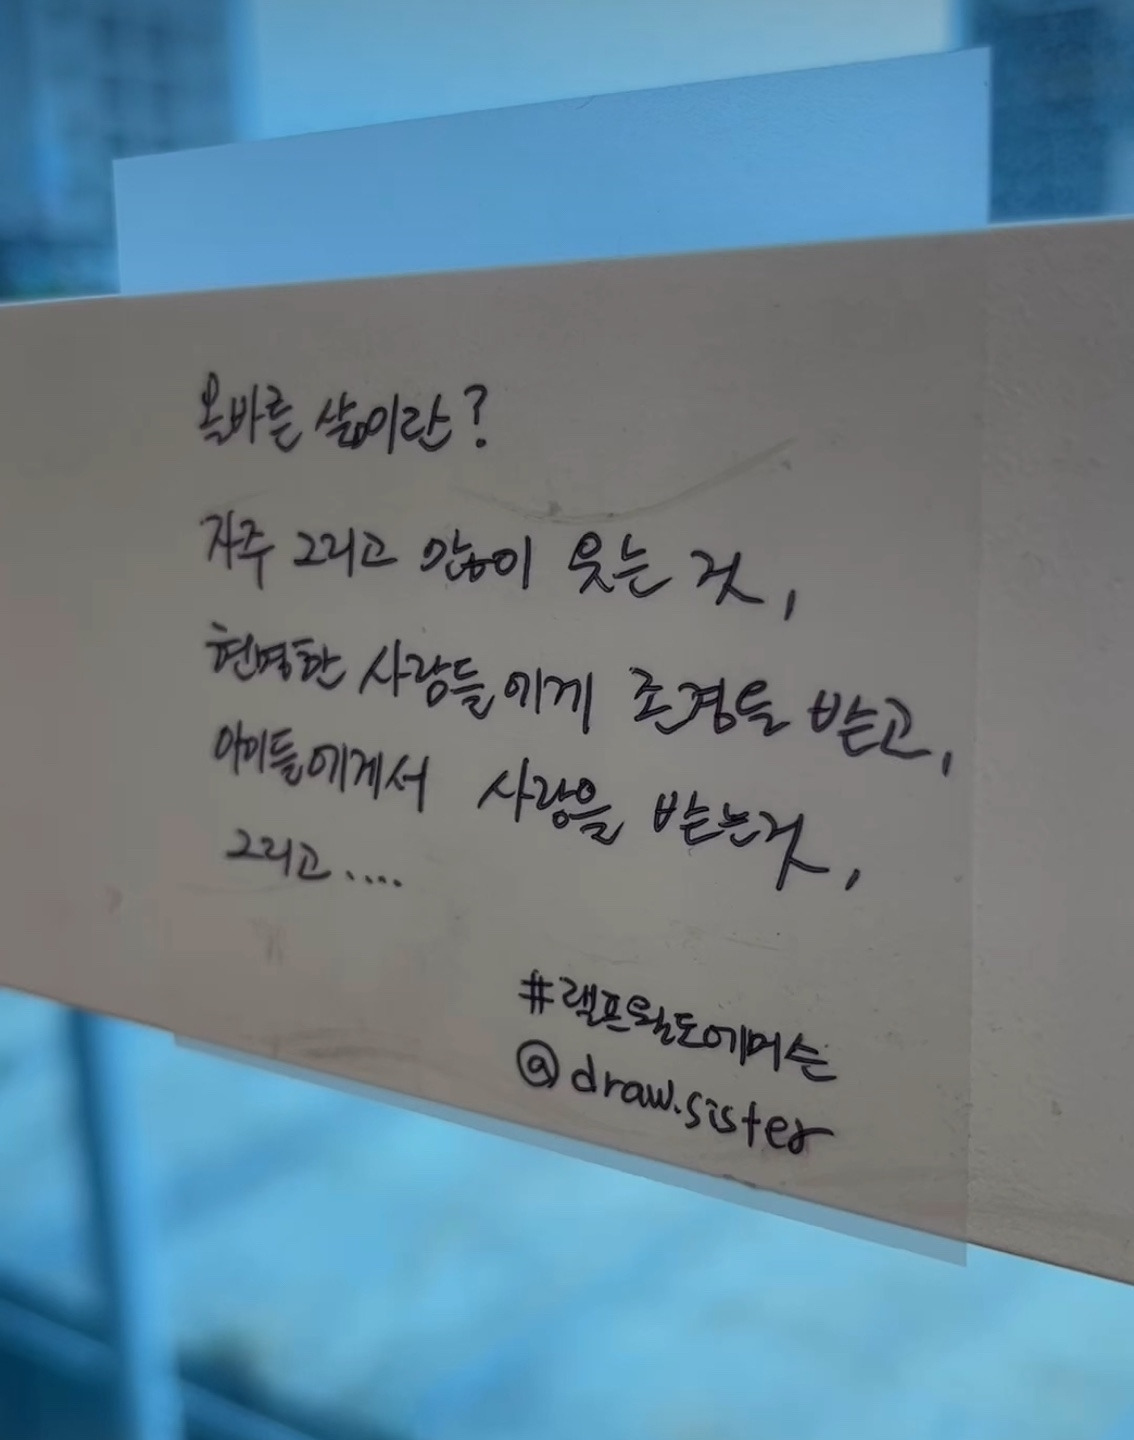 올바른 삶이란?
자주 그리고 많이 웃는 것,
현명한 사람들에게 존경을 받고,
아이들에게서 사랑을 받는것,
그리고....
#랠프왈도에머슨
@draw.sister